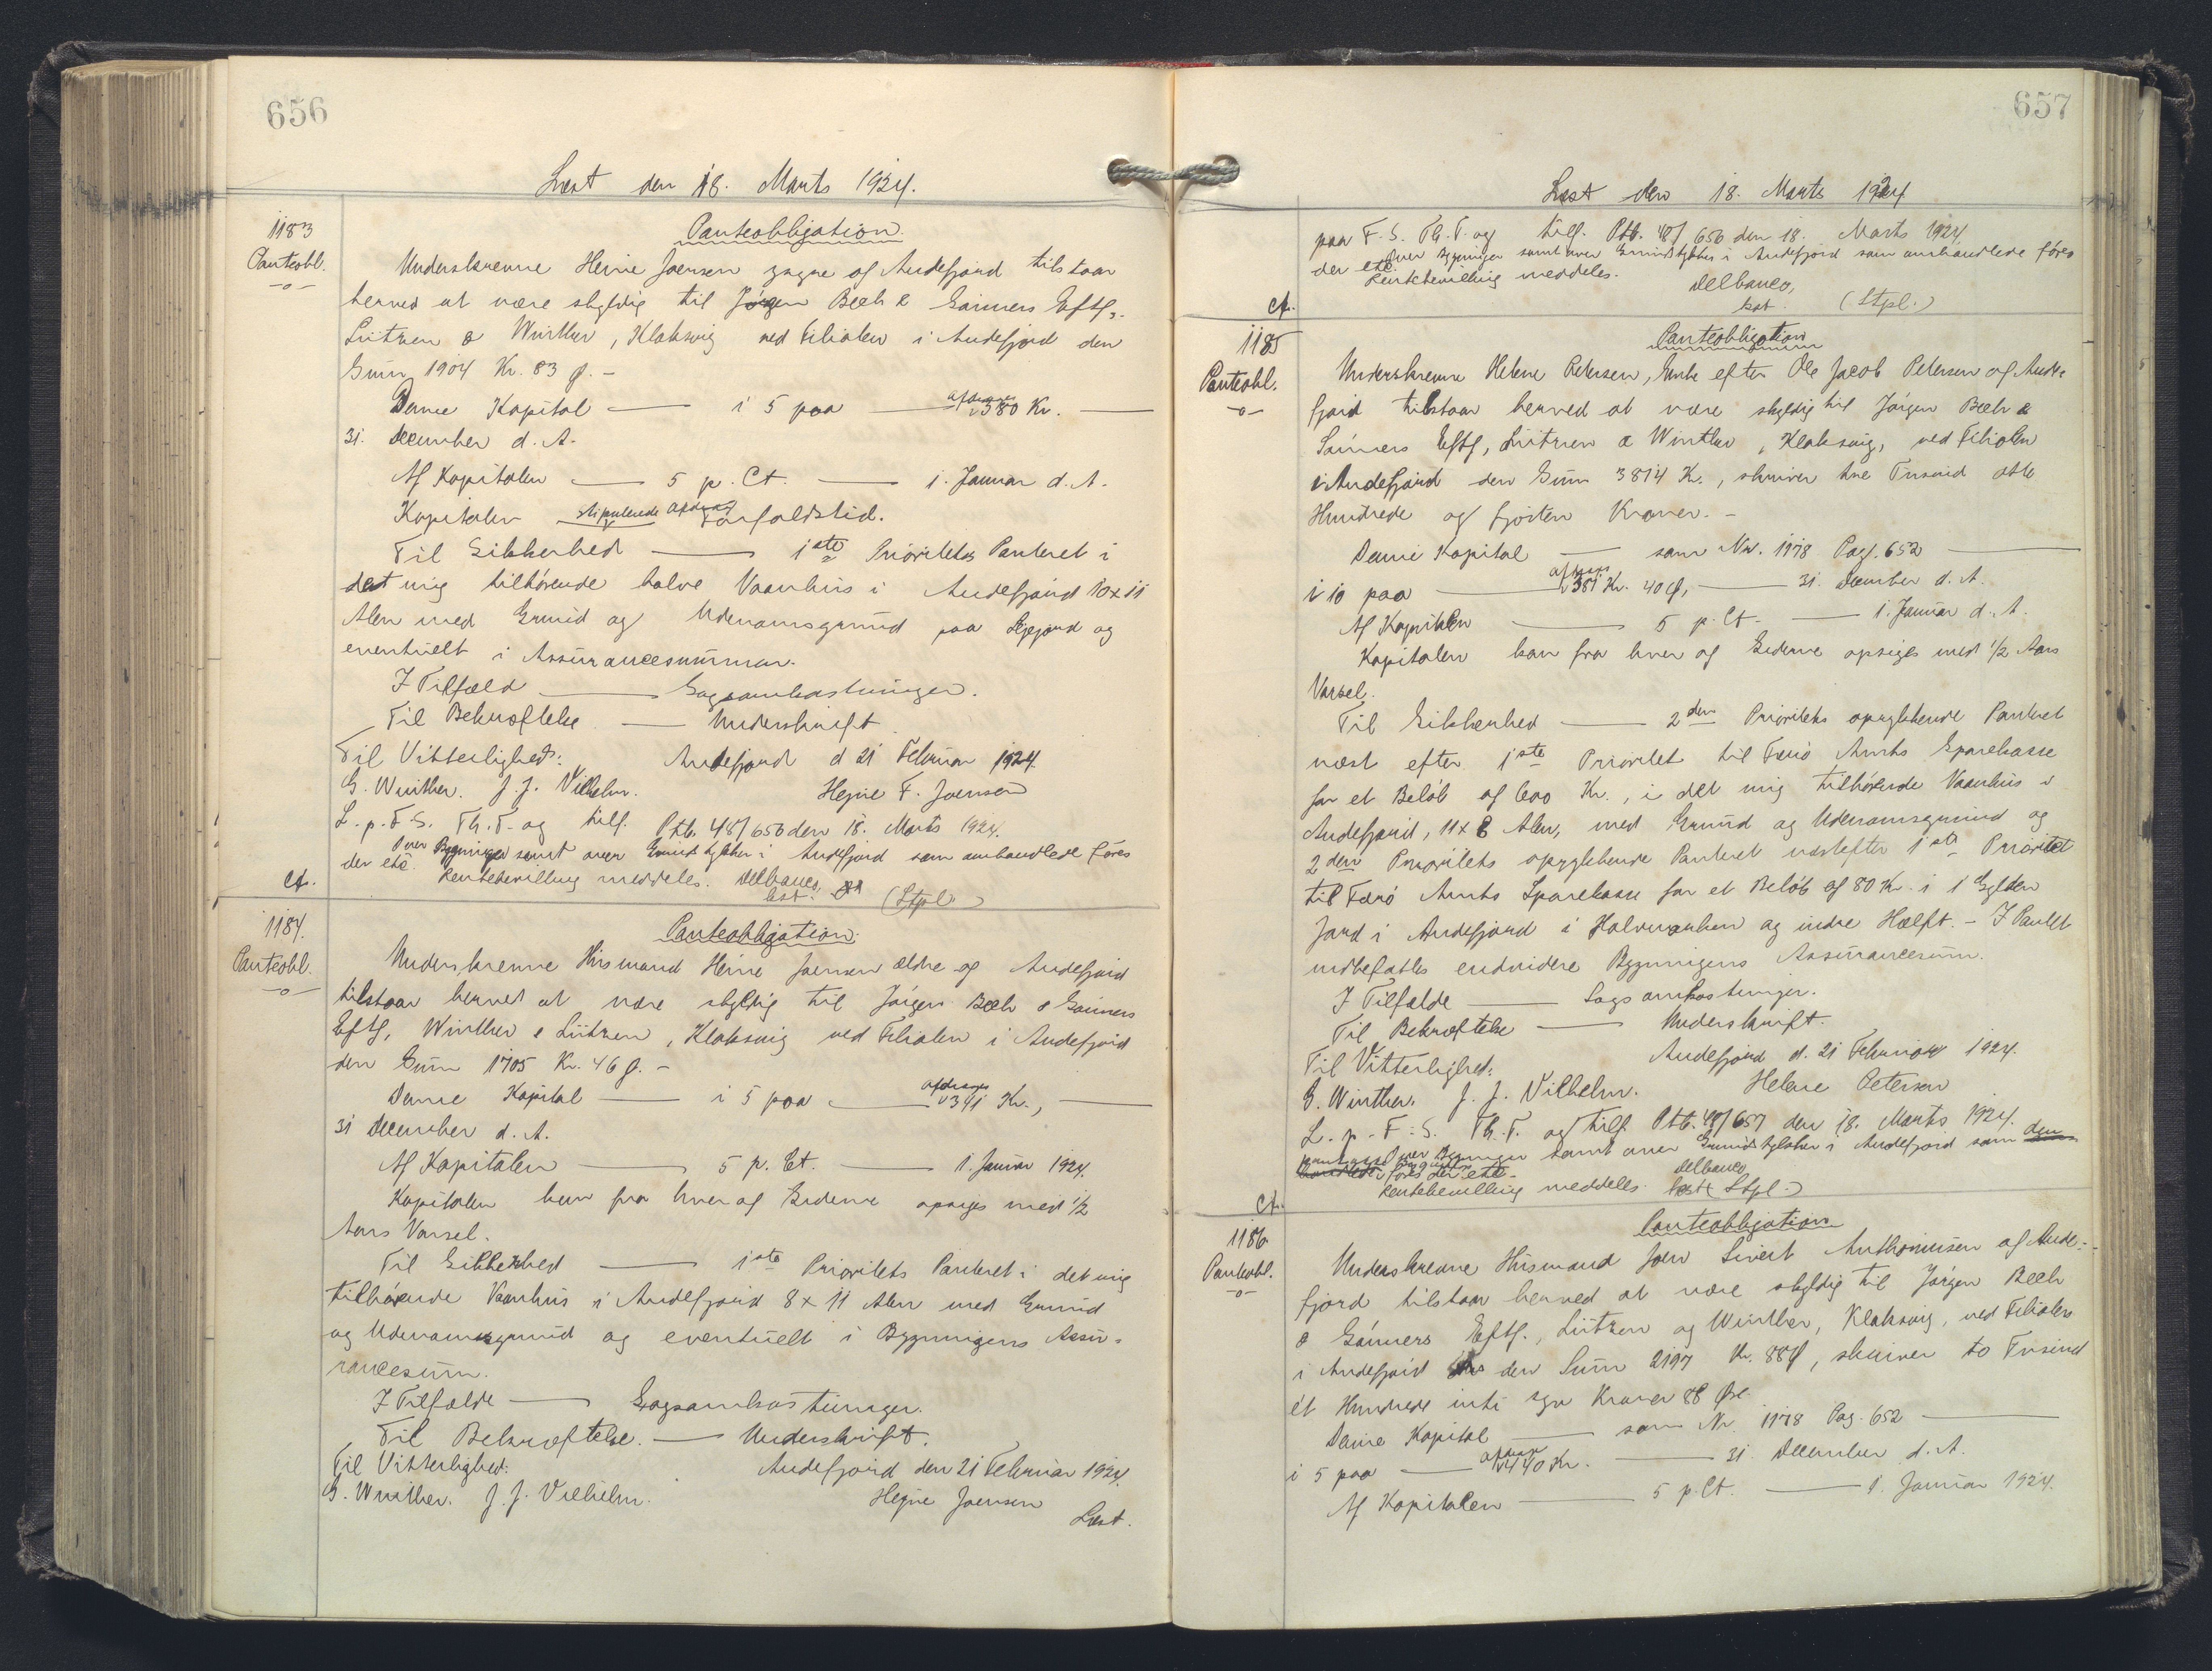 656
Læst den 18. Marts 1924.
1183
Panteobl.
Panteobligation.
Underskrevne Heine Joensen yngre af Andefjord tilstaar
herved at være skyldig til Jørgen Bech & Sønners Eftf.
Lützen & Winther, Klaksvig ved Filialen i Andefjord den
Sum 1904 Kr. 83 Ø. -
Denne Kapital — i 5 paa — afdrag 380 Kr. —
31. December d. A.
Af Kapitalen — 5 p. Ct. — 1. Januar d. A.
Kapitalen stipulerede Afdrag Forfaldstid.
Til Sikkerhed — 1ste Prioritets Panteret i
det mig tilhørende halve Vaanhus i Andefjord 10 x 11
Alen med Grund og Udenomsgrund paa Lejejord og
eventuelt i Assurancesummen.
I Tilfæld — Sagsomkostninger.
Til Bekræftelse — Underskrift
Til Vitterlighed: Andefjord d 21 Februar 1924.
G. Winther. J. J. Vilhelm. Hejne F. Joensen
L. p. F. S. Th. T. og tilf. Ptb. 48/656 den 18. Marts 1924.
over Bygninger samt over Grundstykker i Andefjord som omhandlede føres
der ete. Rentebevilling meddeles. Delbanco,
kst. (Stpl.)
Ct.
1184.
Panteobl.
Panteobligation.
Underskrevne Husmand Heine Joensen ældre af Andefjord
tilstaar herved at være skyldig til Jørgen Bech & Sønners
Eftf, Winther & Lützen, Klaksvig ved Filialen i Andefjord
den Sum 1705 Kr. 46 Ø. -
Denne Kapital — i 5 paa — afdrag 341 Kr., —
31 December d. A.
Af Kapitalen — 5 p. Ct. — 1. Januar 1924.
Kapitalen kan fra hver af Siderne opsiges med 1/2
Aars Varsel.
Til Sikkerhed — 1ste Prioritets Panteret i det mig
tilhørende Vaanhus i Andefjord 8 x 11 Alen med Grund
og Udenomsgrund og eventuelt i Bygningens Assu-
rancesum.
I Tilfælde — Sagsomkostninger.
Til Bekræftelse. — Underskrift.
Til Vitterlighed: Andefjord den 21 Februar 1924.
G. Winther. J. J. Vilhelm. Hejne Joensen
Læst.
657
Læst den 18. Marts 1924
paa F. S. Th. T. og tilf. Ptb. 48/656 den 18. Marts 1924
over Bygninger samt over Grundstykker i Andefjord som omhandlede føres
der ete. Rentebevilling meddeles.
Delbanco,
kst (Stpl.)
Ct.
1185
Panteobl.
Panteobligation
Underskrevne Helene Petersen, Enke efter Ole Jacob Petersen af Ande-
fjord tilstaar herved at være skyldig til Jørgen Bech &
Sønners Eftf, Lützen & Winther, Klaksvig, ved Filialen
i Andefjord den Sum 3814 Kr., skriver tre Tusind otte
Hundrede og fjorten Kroner. -
Denne Kapital — som Nr. 1178 Pag. 652 —
i 10 paa — afdrag 381 Kr. 40 Ø, — 31. December d. A.
Af Kapitalen — 5 p. Ct. — 1. Januar d. A.
Kapitalen kan fra hver af Siderne opsiges med 1/2 Aars
Varsel.
Til Sikkerhed — 2den Prioritets oprykkende Panteret
næst efter 1ste Prioritet til Færø Amts Sparekasse
for et Beløb af 600 Kr., i det mig tilhørende Vaanhus i
Andefjord, 11 x 8 Alen, med Grund og Udenomsgrund og
2den Prioritets oprykkende Panteret næstefter 1ste Prioritet
til Færø Amts Sparekasse for et Beløb af 80 Kr. i 1 Gylden
Jord i Andefjord i Halvmarken og indre Hælft. - I Pantet
indbefattes endvidere Bygningens Assurancesum.
I Tilfælde — Sagsomkostninger.
Til Bekræftelse — Underskrift.
Til Vitterlighed: Andefjord d. 21 Februar 1924.
G. Winther. J. J. Vilhelm. Helene Petersen
L. p. F. S. Th. T. og tilf. Ptb. 48/657 den 18. Marts 1924.
over Bygninger samt over Grundstykker i Andefjord som den
føres der ete.
Rentebevilling meddeles. Delbanco,
kst (Stpl.)
Ct.
1186
Panteobl.
Panteobligation
Underskrevne Husmand Joen Sivert Anthoniussen af Ande-
fjord tilstaar herved at være skyldig til Jørgen Bech
& Sønners Eftf., Lützen og Winther, Klaksvig, ved Filialen
i Andefjord den Sum 2197 Kr. 88 Ø, skriver to Tusind
ét Hundrede niti syv Kroner 88 Øre.
Denne Kapital — som Nr 1178 Pag. 652 —
i 5 paa — afdrag 440 Kr. — 31. December d. A.
Af Kapitalen — 5 p. Ct. — 1. Januar 1924.